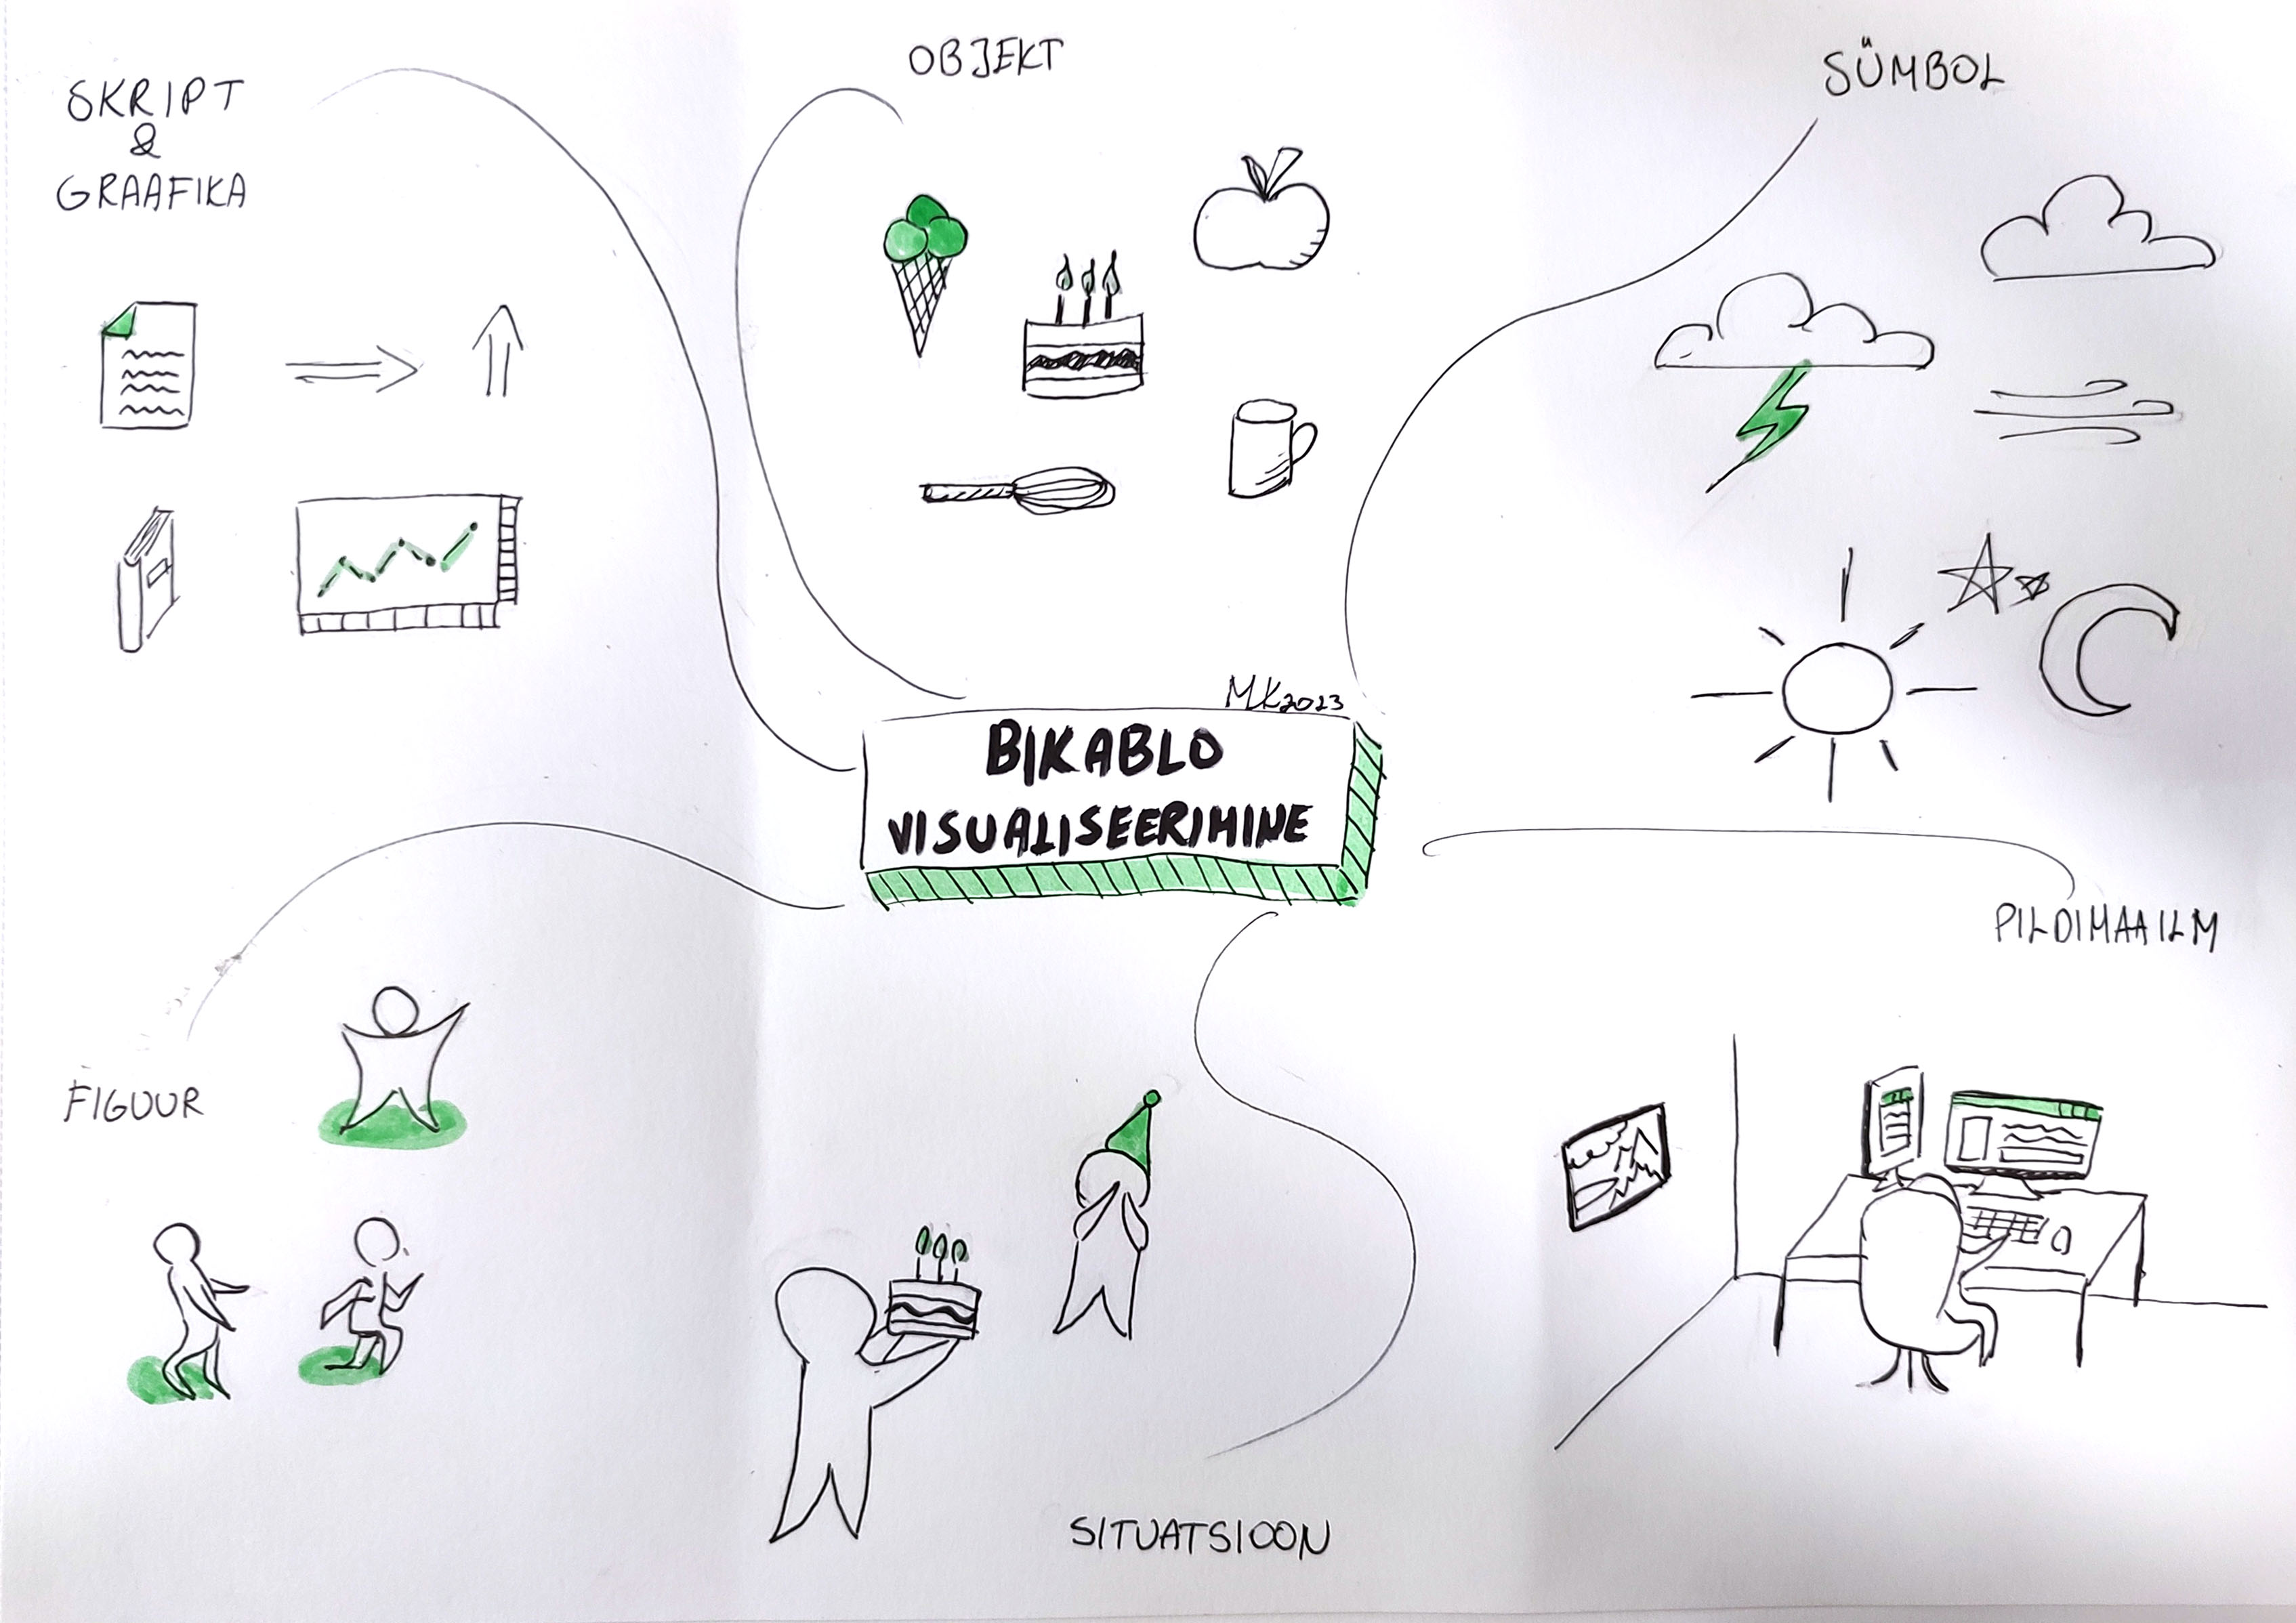 SKRIPT
&
GRAAFIKA
OBJEKT
SÜMBOL
MK2023
BIKABLO
VISUALISEERIMINE
PILDIMAAILM
FIGUUR
SITUATSIOON